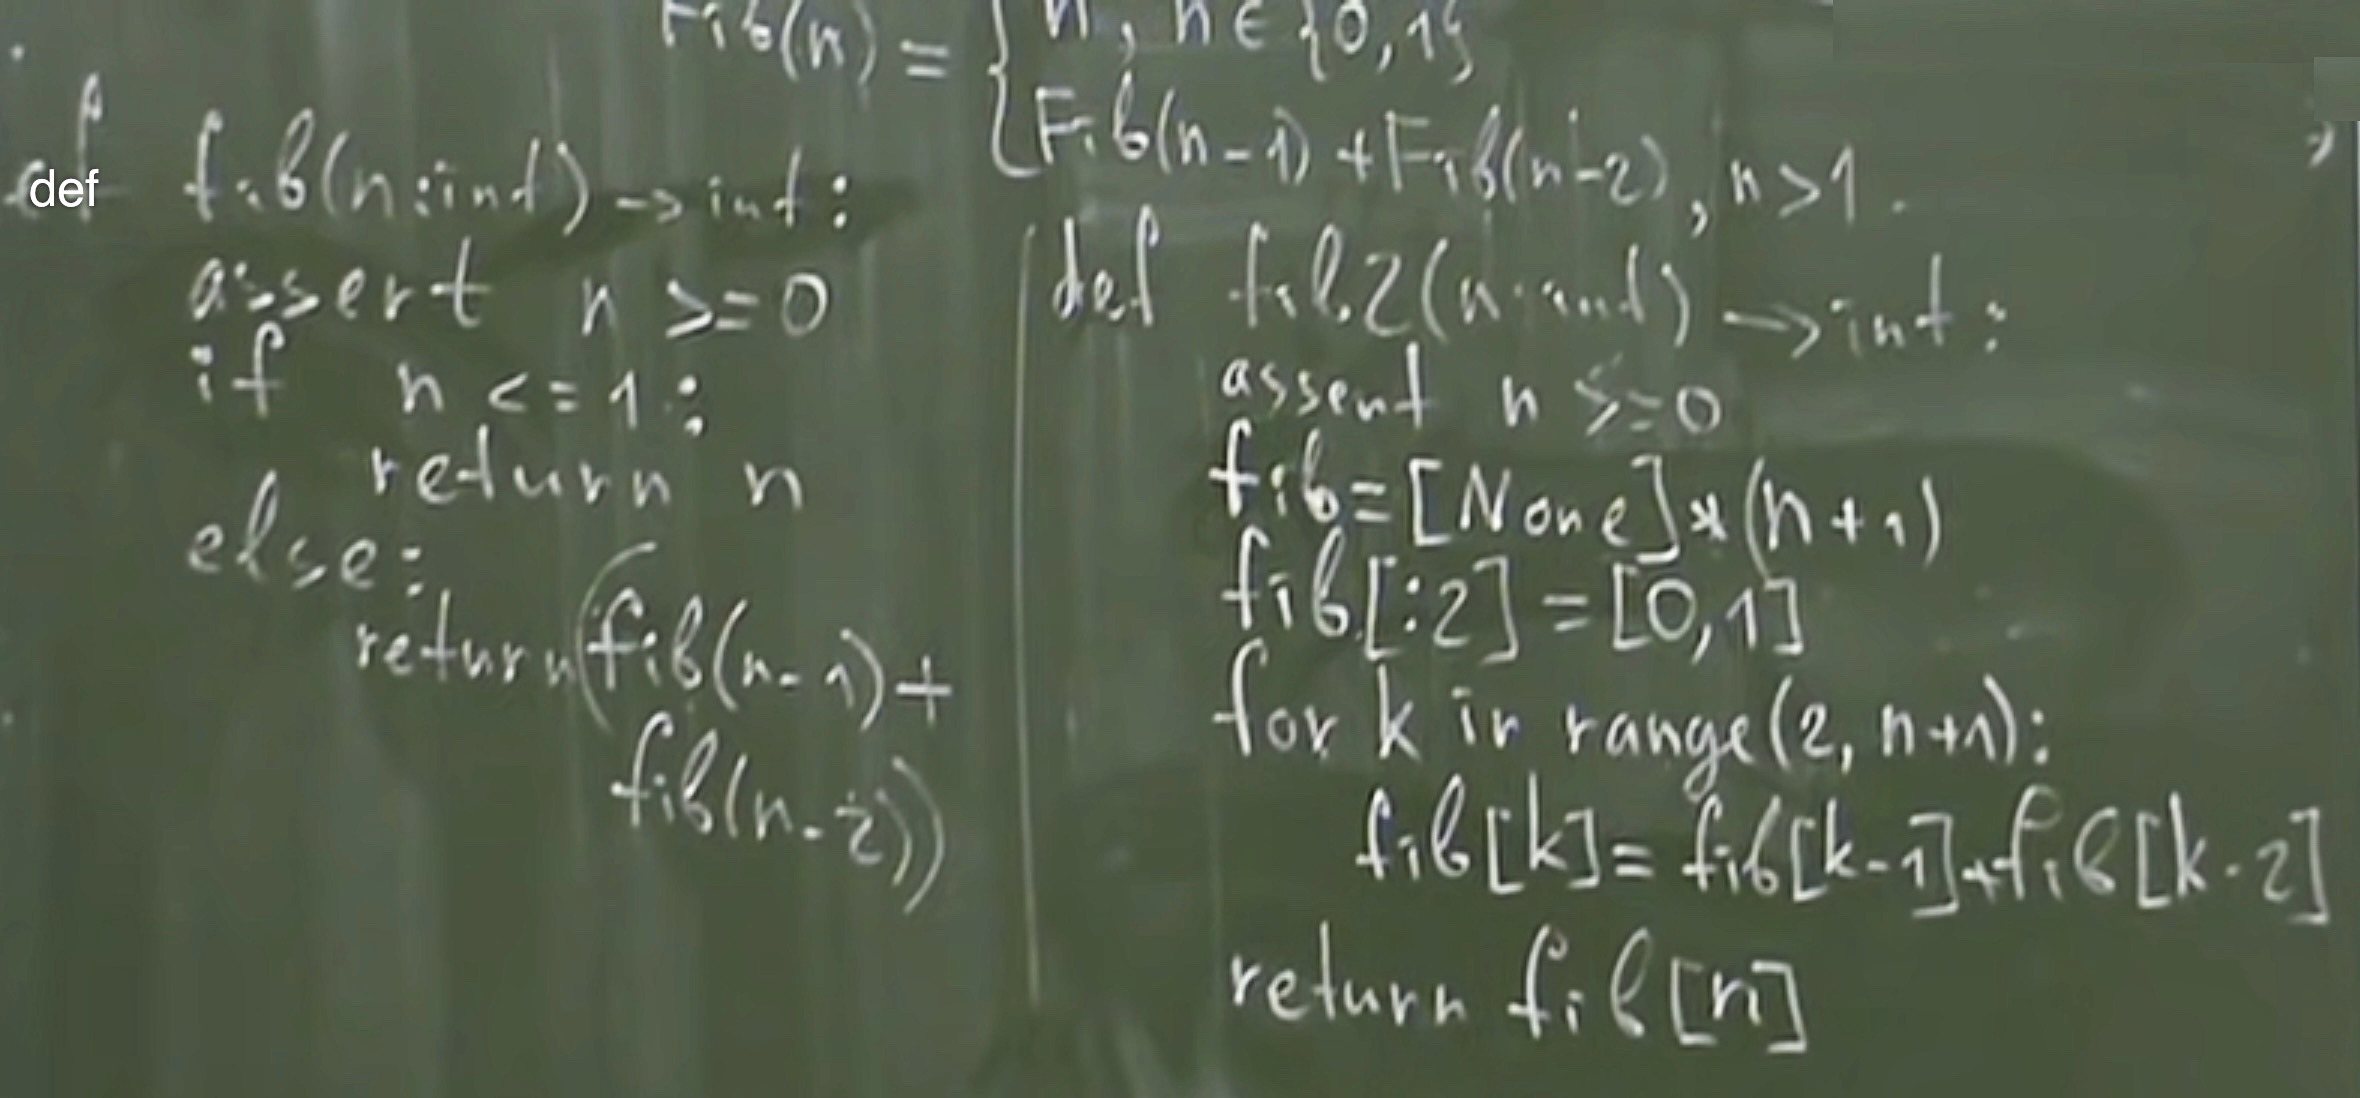 Fib(n) = { n, n ∈ {0,1}
Fib(n-1) + Fib(n-2), n>1.
def fib(n:int) -> int:
assert n >= 0
if n <= 1 :
return n
else:
return (fib(n-1) +
fib(n-2))
def fib2(n:int) -> int:
assert n >= 0
fib = [None] * (n+1)
fib[:2] = [0,1]
for k in range(2, n+1):
fib[k] = fib[k-1] + fib[k-2]
return fib[n]